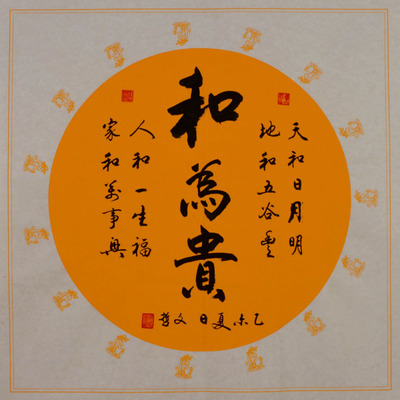 和為貴
天和日月明
地和五谷豐
人和一生福
家和萬事興
乙未夏日 文